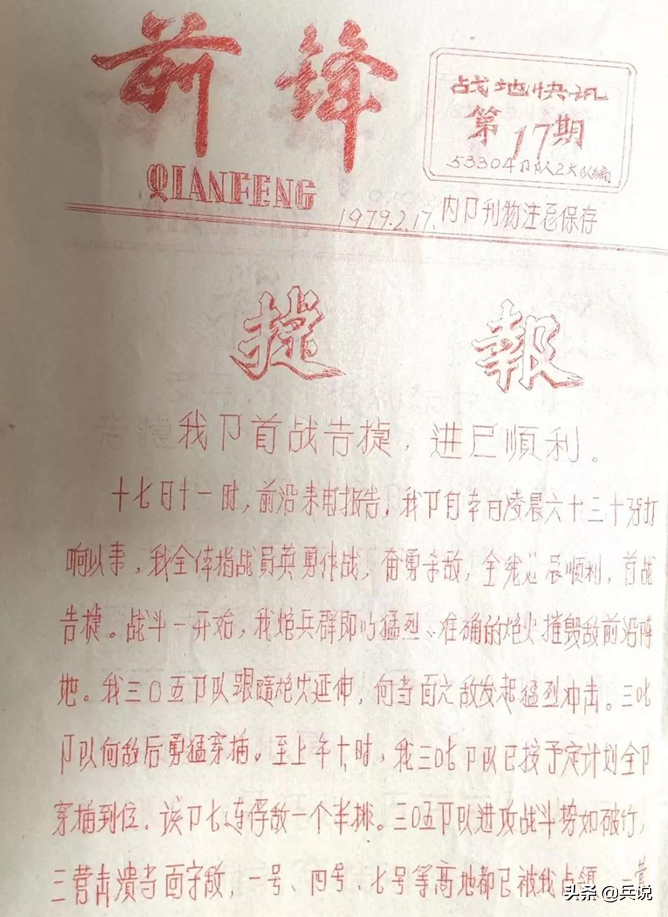 前锋
QIANFENG
战地快讯
第17期
53304卩队2大队编
1979.2.17. 内卩刊物注意保存
捷報
我卩首战告捷，进展順利。
十七日十一时，前沿来电报告，我卩自本日凌晨六十三十分打
响以来，我全体指战員英勇作战，奋勇杀敌，全线进展順利，首战
告捷。战斗一开始，我炮兵群即以猛烈、准确的炮火摧毁敌前沿阵
地。我三〇五卩队跟随炮火延伸，向当面之敌发起猛烈冲击。三〇
卩队向敌后勇猛穿插。至上午十时，我三〇卩队已按予定计划全卩
穿插到位，该卩七连俘敌一个半排。三〇五卩队进攻战斗势如破竹，
三营击溃当面守敌，一号、四号、七号等高地都已被我占領，三营
头条 @兵说